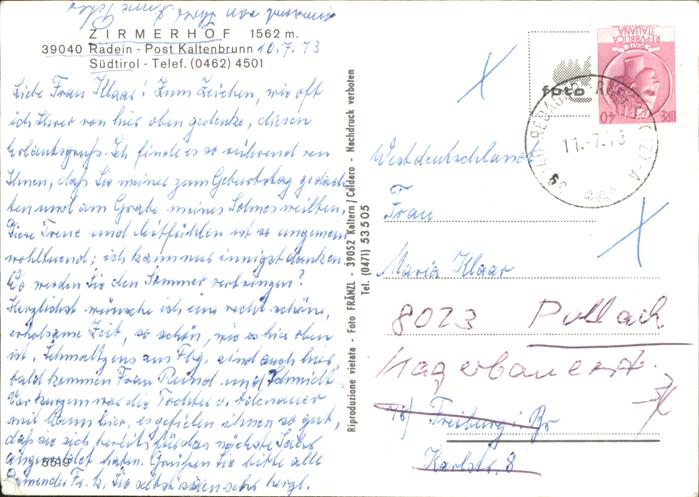 ZIRMERHOF 1562 m.
39040 Radein - Post Kaltenbrunn 10.7.73
Südtirol - Telef. (0462) 4501
Liebe Frau Klaar! Zum Zeichen, wie oft
ich Ihrer von hier oben gedenke, diesen
Urlaubsgruß. Ich finde es so rührend von
Ihnen, daß Sie meines zum Geburtstag gedach-
ten und am Grabe meines Sohnes weilten.
Diese Treue und Mitfühlen ist so ungemein
wohltuend; ich kann nur innigst danken.
Wo werden Sie den Sommer verbringen?
Herzlichst wünsche ich eine recht schöne,
erholsame Zeit, so schön, wie es hier oben
ist. Schmaltzens aus Fbg. sind auch hier,
bald kommen Frau und Schmidt
war die Tochter v. Adenauer
mit hier, es gefielen ihnen so gut,
daß sie sich bereits für das nächste Jahr
angemeldet haben. Grüßen Sie bitte alle
Sie selbst herzl.
5519
Riproduzione vietata - Foto FRÄNZL - 39052 Kaltern / Caldaro - Nachdruck verboten
Tel. (0471) 53505
foto
LIRE 40
REPUBBLICA ITALIANA
11.-7.73
Westdeutschland
Frau
Maria Klaar
8023 Pullach
Hagenbauerstr.
78) Freiburg i. Br
Karlstr. 8